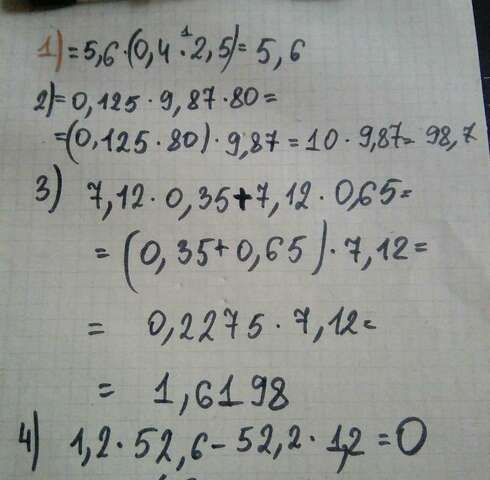 1) = 5,6 · (0,4 · 2,5) = 5,6
1
2) = 0,125 · 9,87 · 80 =
= (0,125 · 80) · 9,87 = 10 · 9,87 = 98,7
3) 7,12 · 0,35 + 7,12 · 0,65 =
= (0,35 + 0,65) · 7,12 =
= 0,2275 · 7,12 =
= 1,6198
4) 1,2 · 52,6 - 52,2 · 1,2 = 0